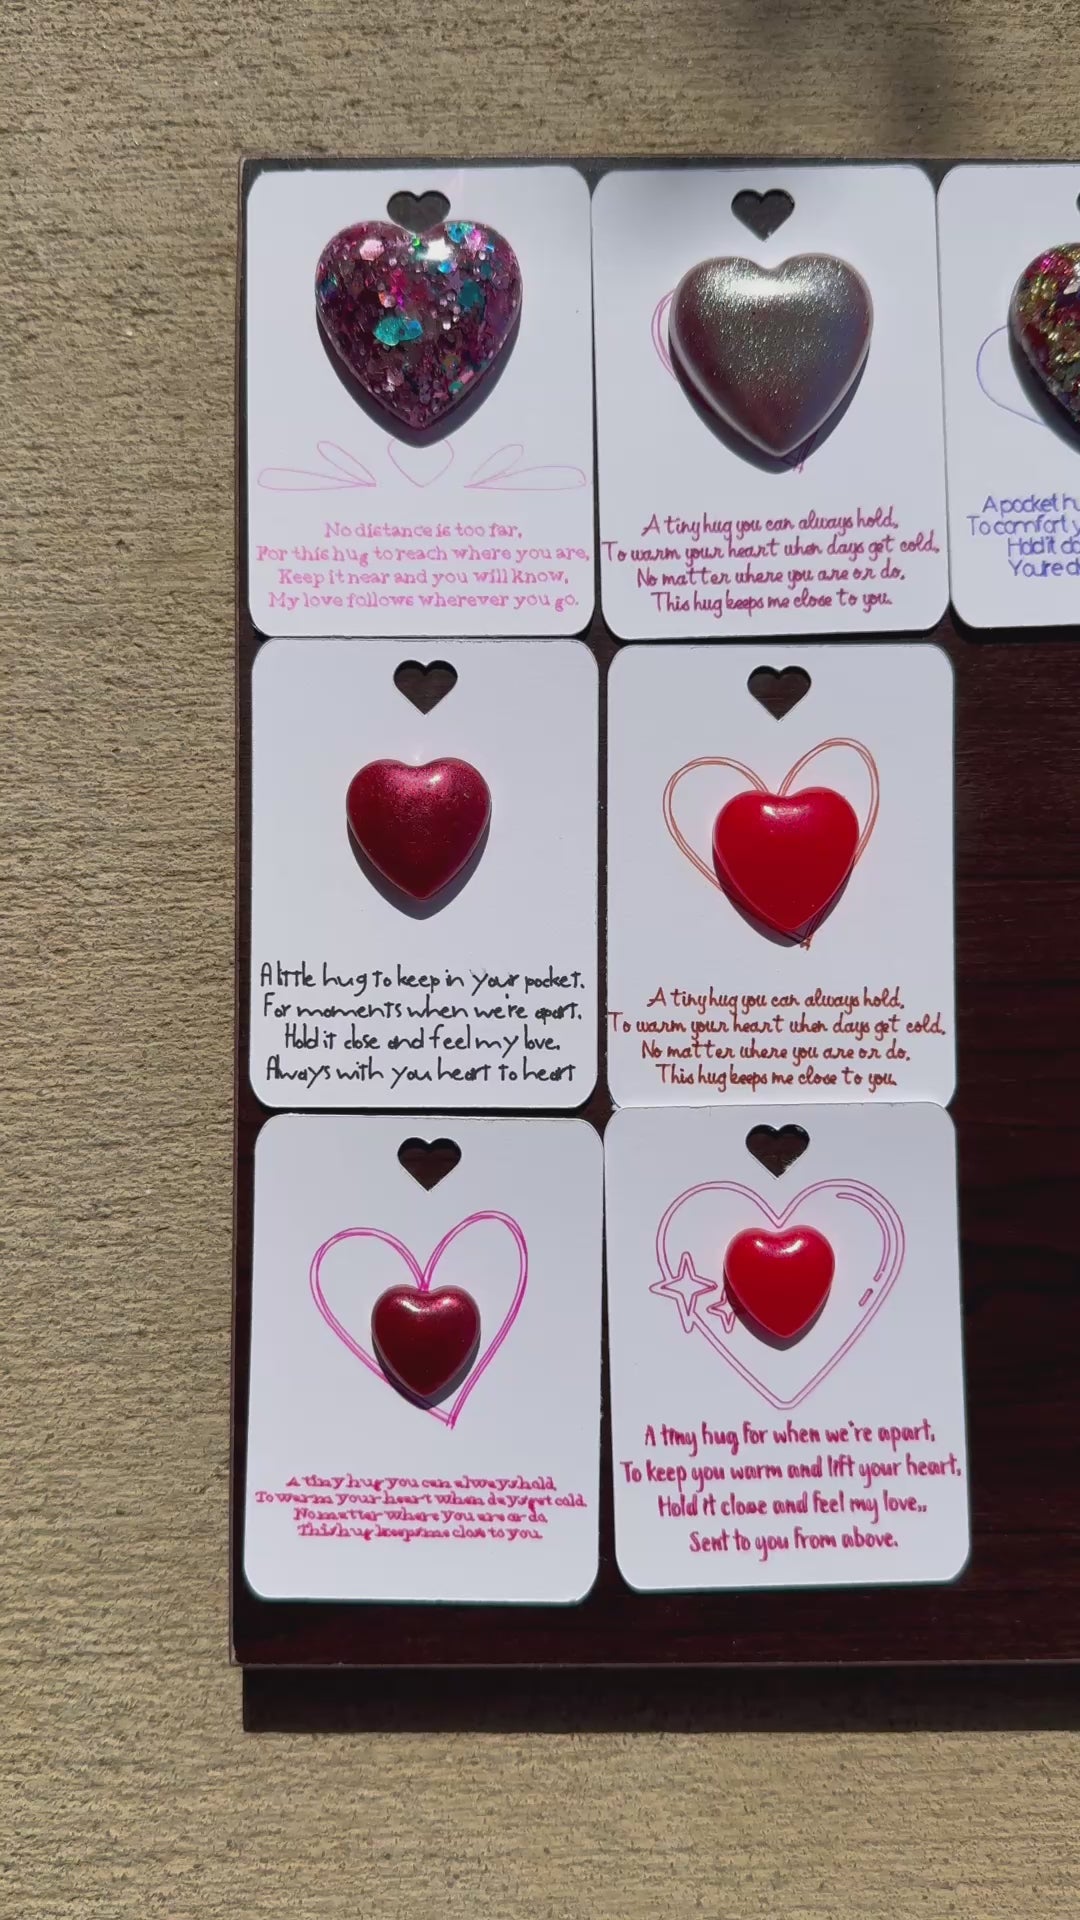 No distance is too far,
For this hug to reach where you are,
Keep it near and you will know,
My love follows wherever you go.
A tiny hug you can always hold,
To warm your heart when days get cold,
No matter where you are or do,
This hug keeps me close to you.
A pocket
To comfort
Hold it
You're
A little hug to keep in your pocket.
For moments when we're apart.
Hold it close and feel my love.
Always with you heart to heart
A tiny hug you can always hold,
To warm your heart when days get cold,
No matter where you are or do,
This hug keeps me close to you.
A tiny hug you can always hold
To warm your heart when days get cold
No matter where you are or do
This hug keeps me close to you
A tiny hug for when we're apart,
To keep you warm and lift your heart,
Hold it close and feel my love,,
Sent to you from above.